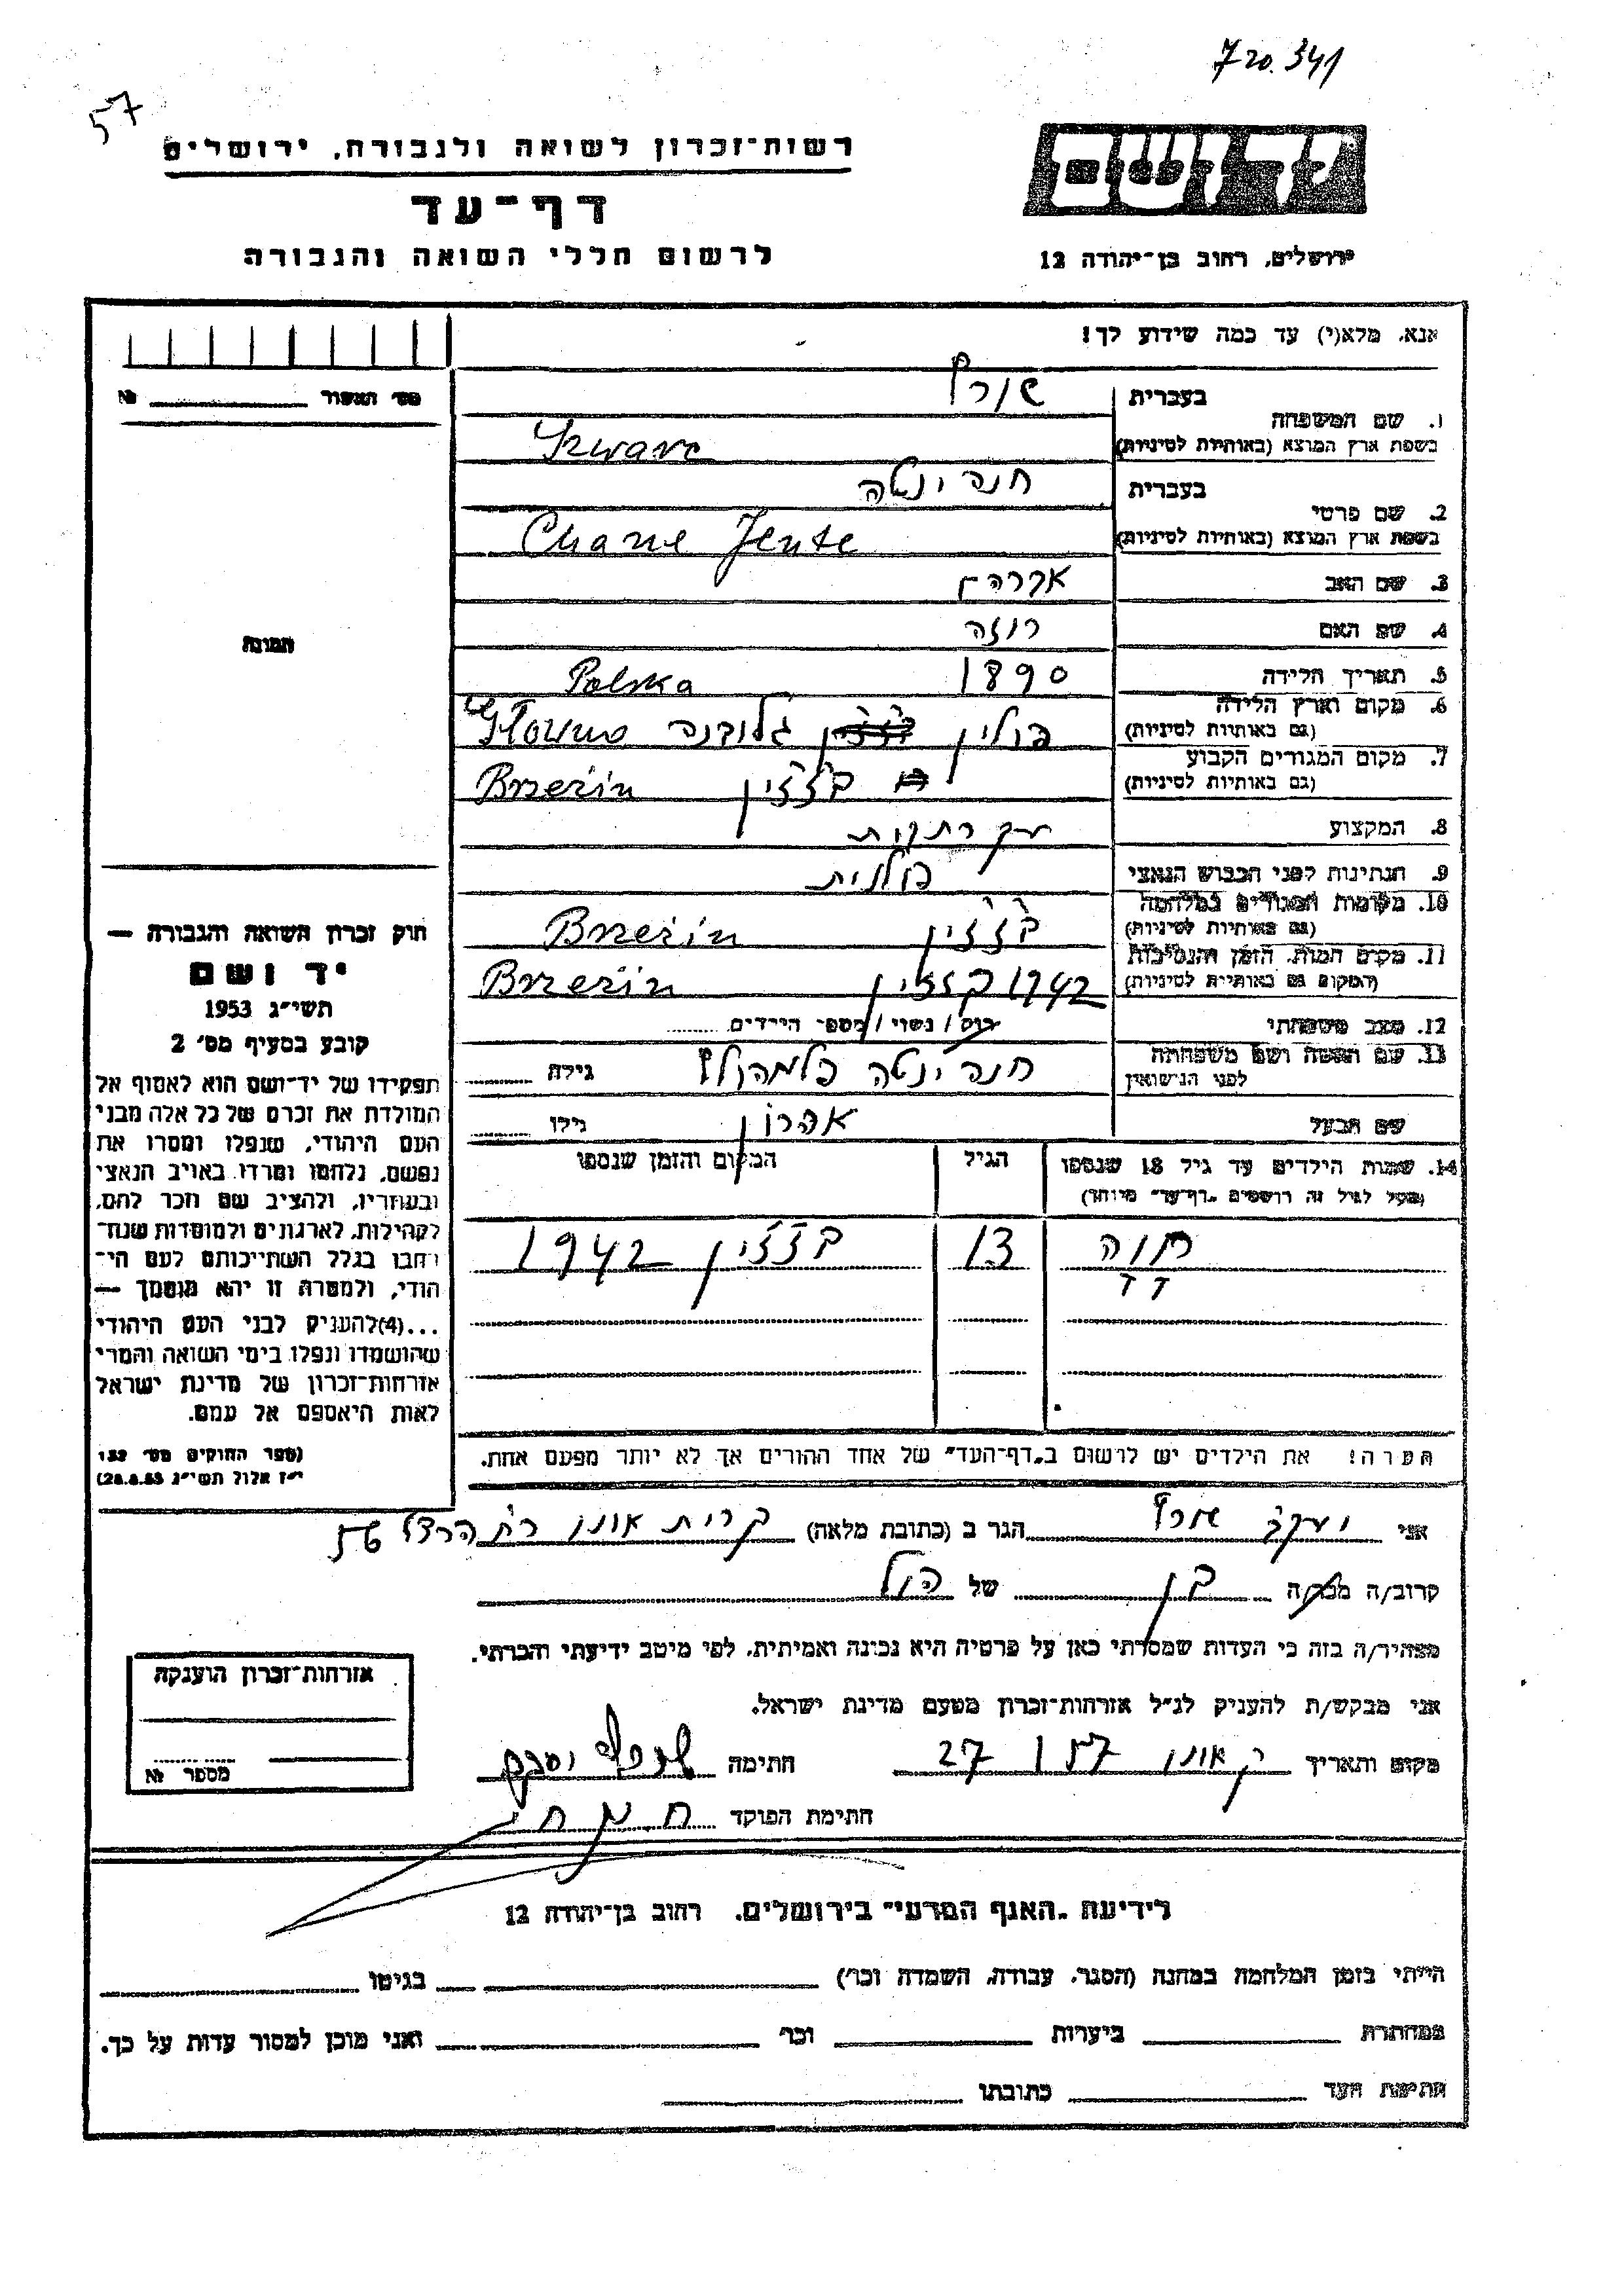 57
רשות־זכרון לשואה ולגבורה, ירושלים
דף־עד
לרשום חללי השואה והגבורה
ירושלים, רחוב בן־יהודה 12
אנא, מלא(י) עד כמה שידוע לך!
מס׳ האשור №
1. שם המשפחה
בעברית
בשפת ארץ המוצא (באותיות לטיניות)
2. שם פרטי
בעברית חנה ינטה
בשפת ארץ המוצא (באותיות לטיניות) Chane Jente
3. שם האב אברהם
4. שם האם רוזה
5. תאריך הלידה 1890 Polska
6. מקום וארץ הלידה
(גם באותיות לטיניות) פולין גלובנה Głowno
7. מקום המגורים הקבוע
(גם באותיות לטיניות) בז׳ז׳ין Brzezin
8. המקצוע עקרת בית
9. הנתינות לפני הכבוש הנאצי פולנית
10. מקומות המגורים במלחמה
(גם באותיות לטיניות) בז׳ז׳ין Brzezin
11. מקום המות, הזמן והנסיבות
(המקום גם באותיות לטיניות) 1942 בזזין Brzezin
12. מצב משפחתי רוק/ נשוי/ מספר הילדים
13. שם האשה ושם משפחתה
לפני הנישואין חנה ינטה גילה
שם הבעל אהרון גילו
14. שמות הילדים עד גיל 18 שנספו
(מעל לגיל זה רושמים „דף־עד״ מיוחד)
הגיל
המקום והזמן שנספו
חוה 13 בז׳ז׳ין 1942
הערה! את הילדים יש לרשום ב„דף־העד״ של אחד ההורים אך לא יותר מפעם אחת.
תמונה
חוק זכרון השואה והגבורה —
יד ושם
תשי״ג 1953
קובע בסעיף מס׳ 2
תפקידו של יד־ושם הוא לאסוף אל
המולדת את זכרם של כל אלה מבני
העם היהודי, שנפלו ומסרו את
נפשם, נלחמו ומרדו באויב הנאצי
ובעוזריו, ולהציב שם וזכר להם,
לקהילות, לארגונים ולמוסדות שנח־
רבו בגלל השתייכותם לעם הי־
הודי, ולמטרה זו יהא מוסמך —
...(4)להעניק לבני העם היהודי
שהושמדו ונפלו בימי השואה והמרי
אזרחות־זכרון של מדינת ישראל
לאות היאספם אל עמם.
(ספר החוקים מס׳ 132
י״ז אלול תשי״ג 28.8.53)
אני יעקב הגר ב (כתובת מלאה) קרית אונו
קרוב/ה מכר/ה בן של
מצהיר/ה בזה כי העדות שמסרתי כאן על פרטיה היא נכונה ואמיתית, לפי מיטב ידיעתי והכרתי.
אני מבקש/ת להעניק לנ״ל אזרחות־זכרון מטעם מדינת ישראל.
מקום ותאריך ק אונו 27 חתימה
חתימת הפוקד
אזרחות־זכרון הוענקה
מספר №
לידיעת „האגף המדעי״ בירושלים, רחוב בן־יהודה 12
הייתי בזמן המלחמה במחנה (הסגר, עבודה, השמדה וכו׳) בגיטו
במחתרת ביערות וכו׳ ואני מוכן למסור עדות על כך.
חתימת העד כתובתו